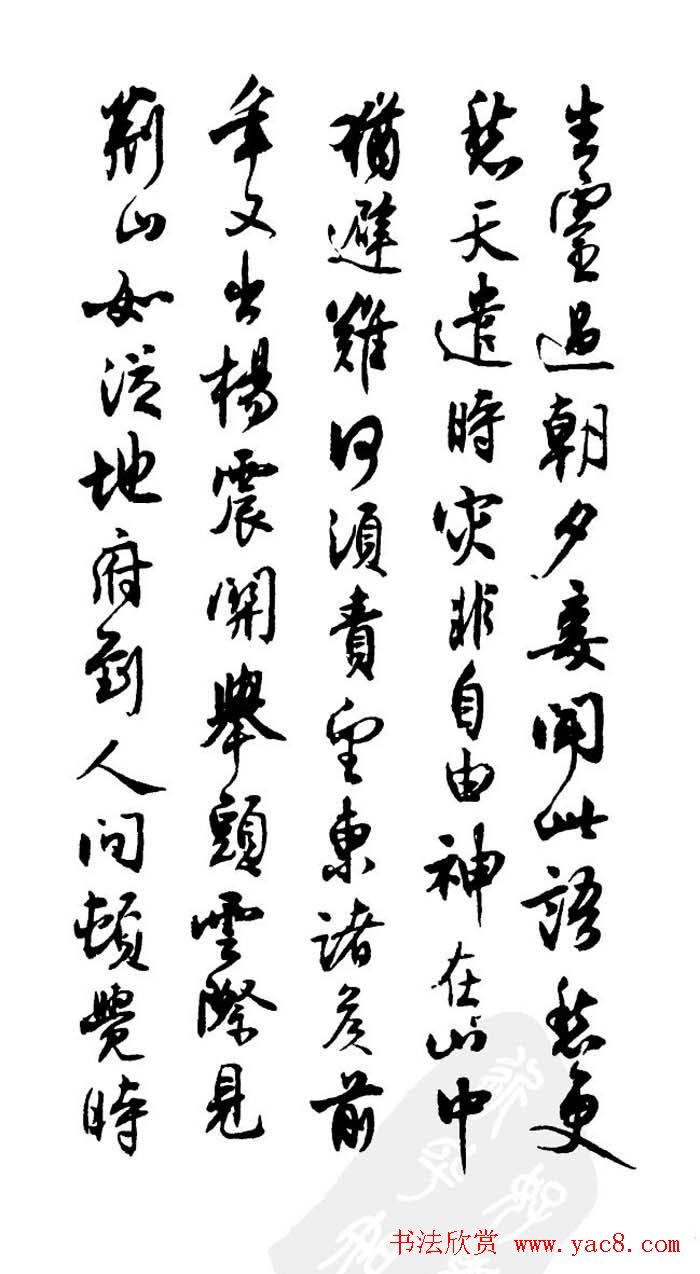 生靈過朝夕妾聞此語愁更
愁天遣時灾非自由神在山中
猶避難何須責望東諸侯前
年又出楊震關舉頭雲際見
荆山如從地府到人間頓覺時
书法欣赏 www.yac8.com